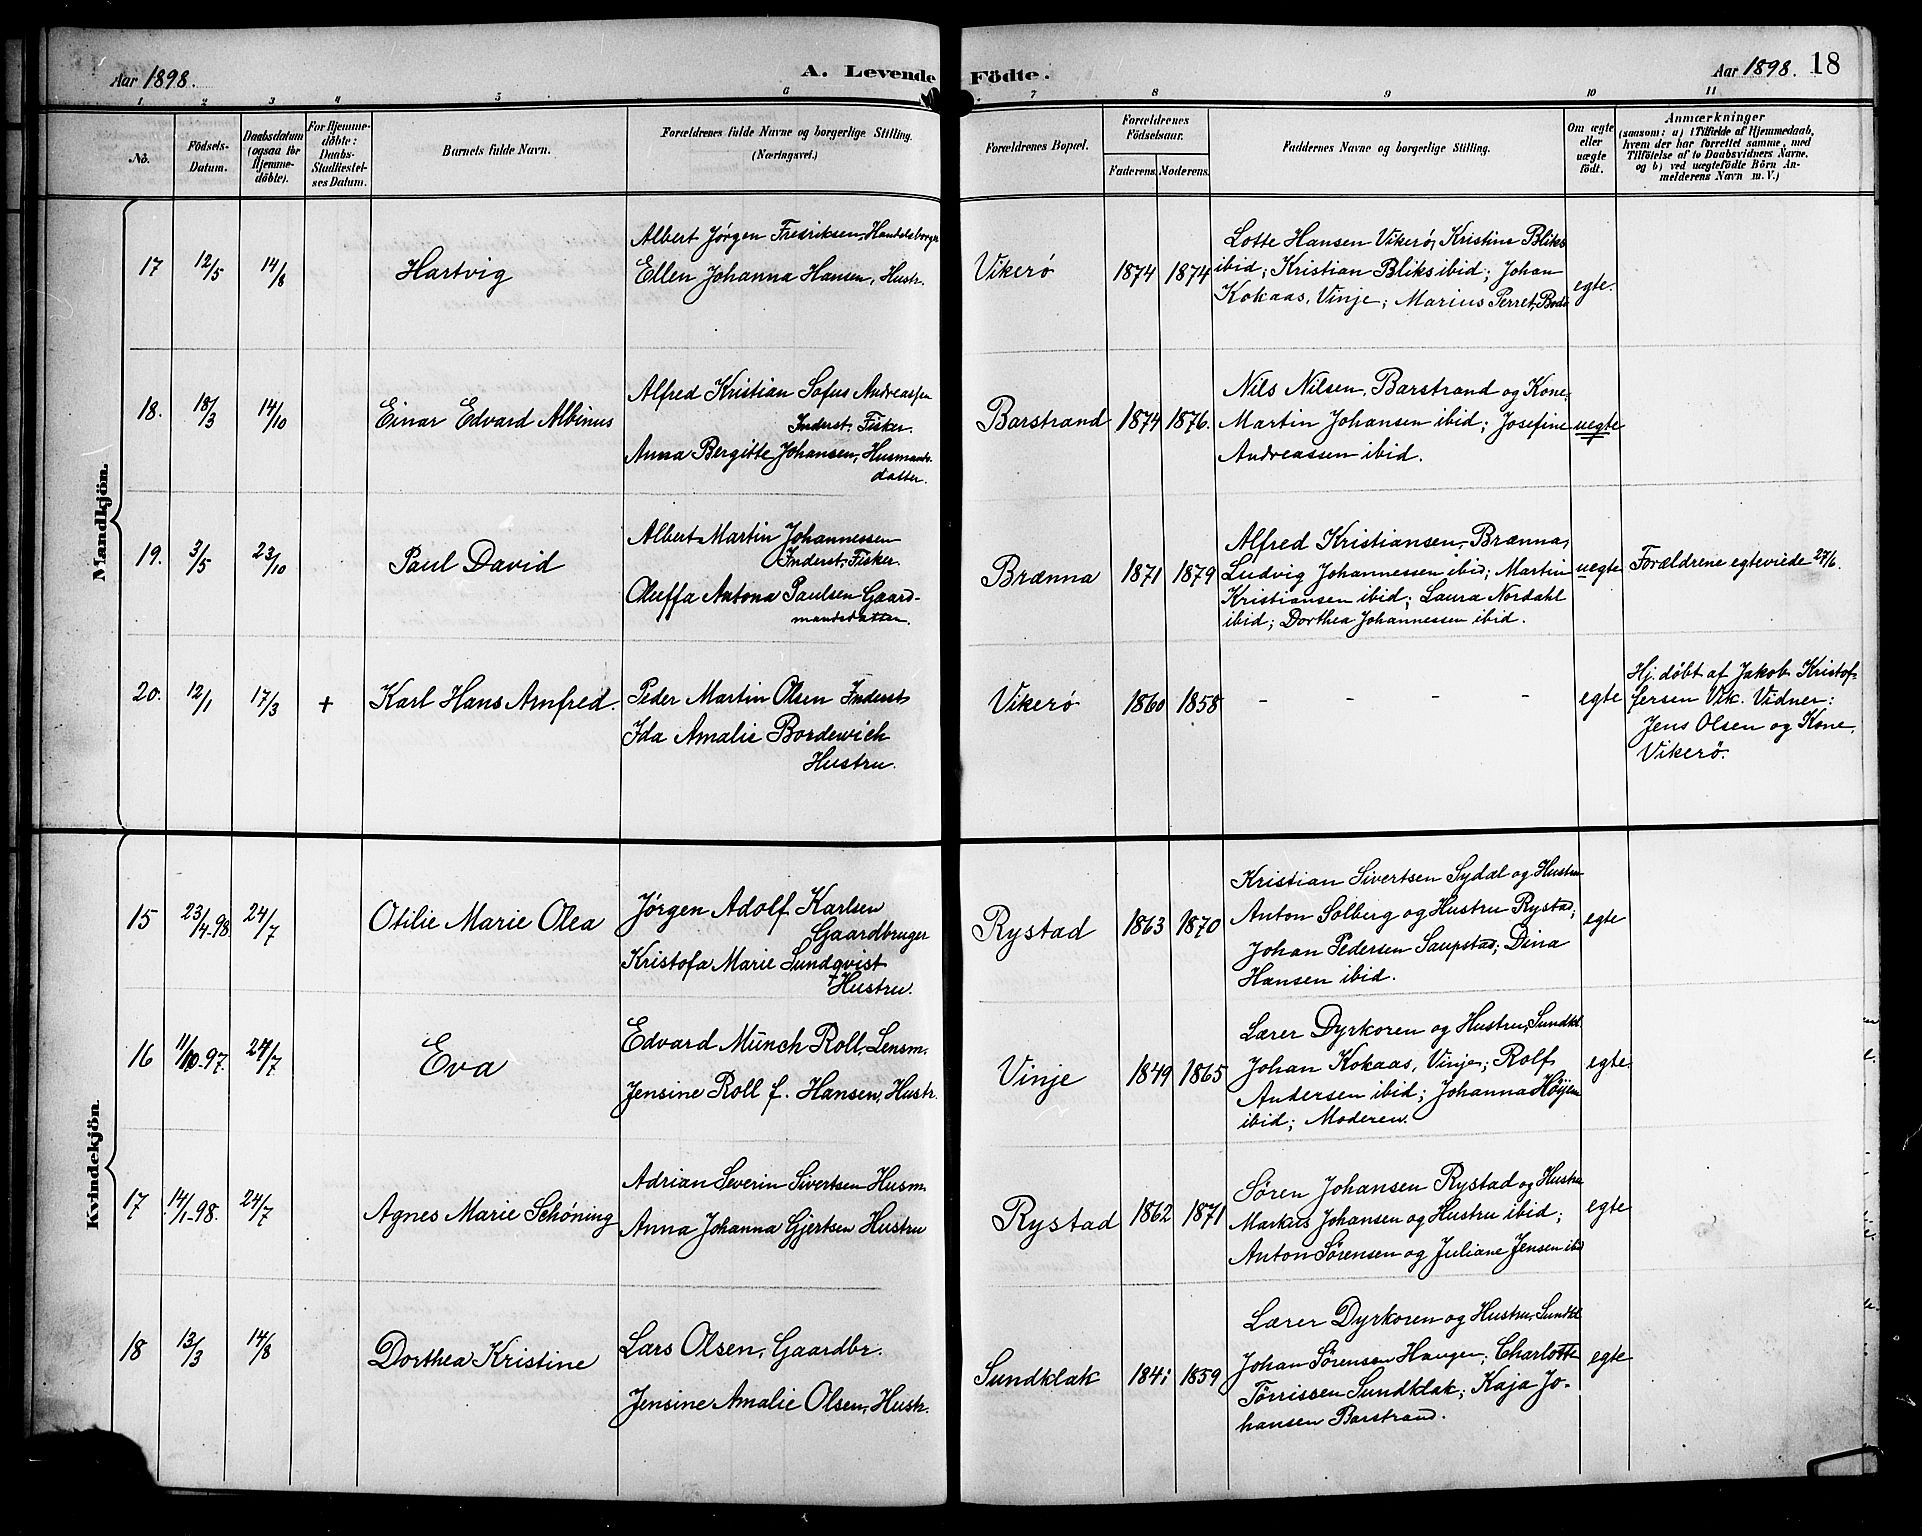 Aar 1898.
A. Levende Födte.
Aar 1898. 18
1 2 3 4 5 6 7 8 9 10 11
No.
Födsels-
Datum.
Daabsdatum
(ogsaa for
Hjemme-
döbte).
For Hjemme-
döbte:
Daabs-
Stadfæstel-
ses Datum.
Barnets fulde Navn.
Forældrenes fulde Navne og borgerlige Stilling.
(Næringsvei.)
Forældrenes Bopæl.
Forældrenes
Födselsaar.
Faderens. Moderens.
Faddernes Navne og borgerlige Stilling.
Om ægte
eller
uægte
födt.
Anmærkninger
(saasom: a) i Tilfælde af Hjemmedaab,
hvem der har forrettet samme, med
Tilföielse af to Daabsvidners Navne,
og b) ved uægtefödte Börn An-
melderens Navn m. V.)
Mandkjön.
17 12/5 14/8
Hartvig
Albert Jørgen Fredriksen, Handelsborger
Ellen Johanna Hansen, Hustr.
Vikerø 1874 1874
Lotte Hansen Vikerø, Kristine Bliks
ibid; Kristian Bliks ibid; Johan
Kokaas, Vinje; Marius Perret, Bodø
egte.
18. 18/3 14/10
Einar Edvard Albinus
Alfred Kristian Sofus Andreassen
Inderst, Fisker.
Anna Bergitte Johansen, Husmands-
datter.
Barstrand 1874 1876.
Nils Nilsen, Barstrand og Kone,
Martin Johansen ibid; Josefine
Andreassen ibid.
uegte
19. 3/5 23/10
Paul David
Albert Martin Johannessen
Inderst, Fisker.
Oluffa Antona Paulsen Gaard-
mandsdatter.
Brænna 1871 1879
Alfred Kristiansen, Brænna,
Ludvig Johannessen ibid; Martin
Kristiansen ibid; Laura Nordahl
ibid; Dorthea Johannessen ibid.
uegte
Forældrene egteviede 27/6.
20. 12/1 17/3 +
Karl Hans Arnfred.
Peder Martin Olsen Inderst
Ida Amalie Bordewich
Hustru.
Vikerø 1860 1858 - - - -
egte
Hj. døbt af Jakob Kristof-
fersen Vik. Vidner:
Jens Olsen og Kone,
Vikerø.
Kvindekjön.
15 23/4-98 24/7
Otilie Marie Olea
Jørgen Adolf Karlsen
Gaardbruger
Kristofa Marie Sundqvist
Hustru.
Rystad 1863 1870
Kristian Sivertsen Sydal og Hustru
Anton Solberg og Hustru Rystad;
Johan Pedersen Saupstad; Dina
Hansen ibid.
egte
16 11/10-97. 24/7
Eva
Edvard Münch Roll, Lensm.
Jensine Roll f. Hansen, Hustr.
Vinje 1849 1865
Lærer Dyrkoren og Hustru, Sundkl.
Johan Kokaas, Vinje; Rolf
Andersen ibid; Johanna Höyem
ibid; Moderen.
egte.
17 14/1-98. 24/7
Agnes Marie Schöning
Adrian Severin Sivertsen Husm.
Anna Johanna Gjertsen Hustru
Rystad 1862 1871
Søren Johansen Rystad og Hustru
Markus Johansen og Hustru ibid;
Anton Sørensen og Juliane Jensen ibid
egte
18 13/3 14/8
Dorthea Kristine
Lars Olsen, Gaardbr.
Jensine Amalie Olsen, Hustr.
Sundklak 1841 1859
Lærer Dyrkoren og Hustru, Sundkl.
Johan Sørensen Haugen; Charlotte
Tørrissen Sundklak; Kaja Jo-
hansen Barstrand.
egte